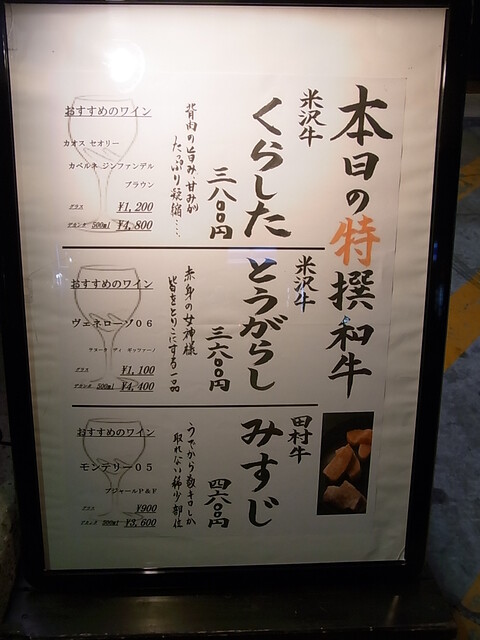 本日の特撰和牛
米沢牛
くらした
三八〇〇円
背肉の旨み、甘みが
たっぷり凝縮....
おすすめのワイン
カオス セオリー
カベルネ ジンファンデル
ブラウン
グラス ¥1,200
デカンタ 500ml ¥4,800
米沢牛
とうがらし
三六〇〇円
赤身の女神様
皆をとりこにする一品
おすすめのワイン
ヴェネローゾ06
グラス ¥1,100
デカンタ 500ml ¥4,400
田村牛
みすじ
四六〇〇円
うでから数キロしか
取れない稀少部位
おすすめのワイン
モンテリー05
ブジャールP&F
グラス ¥900
デカンタ 500ml ¥3,600